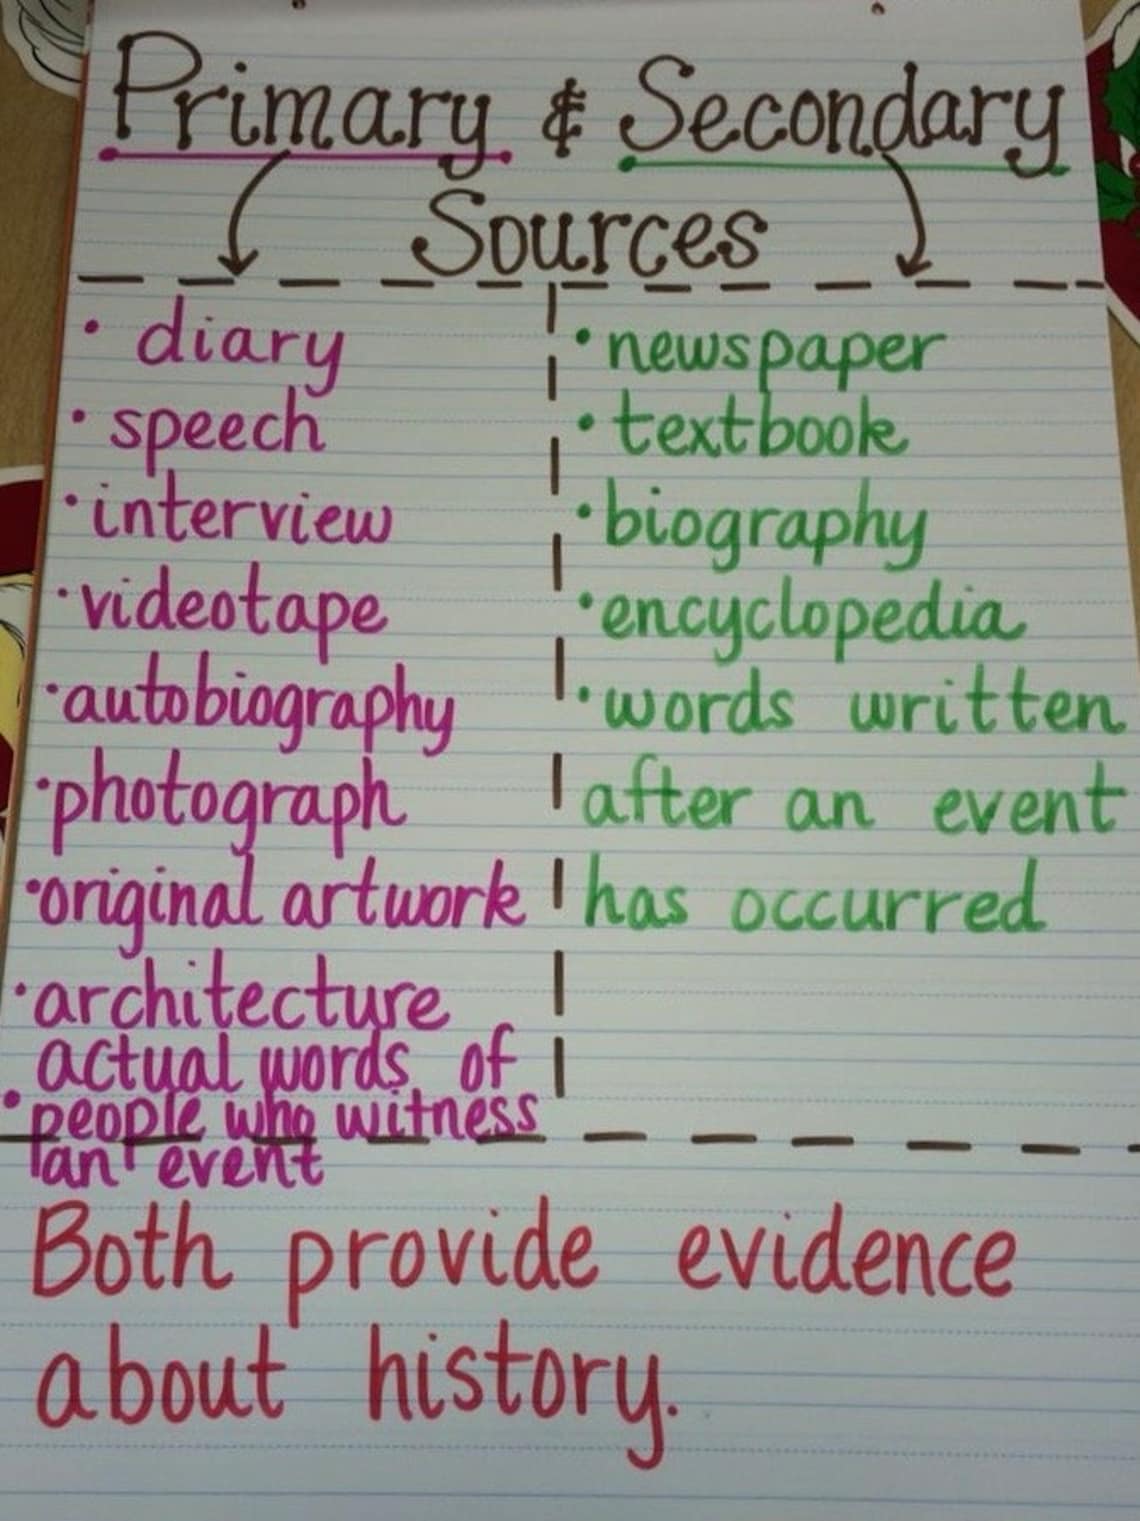 Primary & Secondary
Sources
• diary
• speech
• interview
• videotape
• autobiography
• photograph
• original artwork
• architecture
• actual words of
people who witness
an event
• newspaper
• textbook
• biography
• encyclopedia
• words written
after an event
has occurred
Both provide evidence
about history.